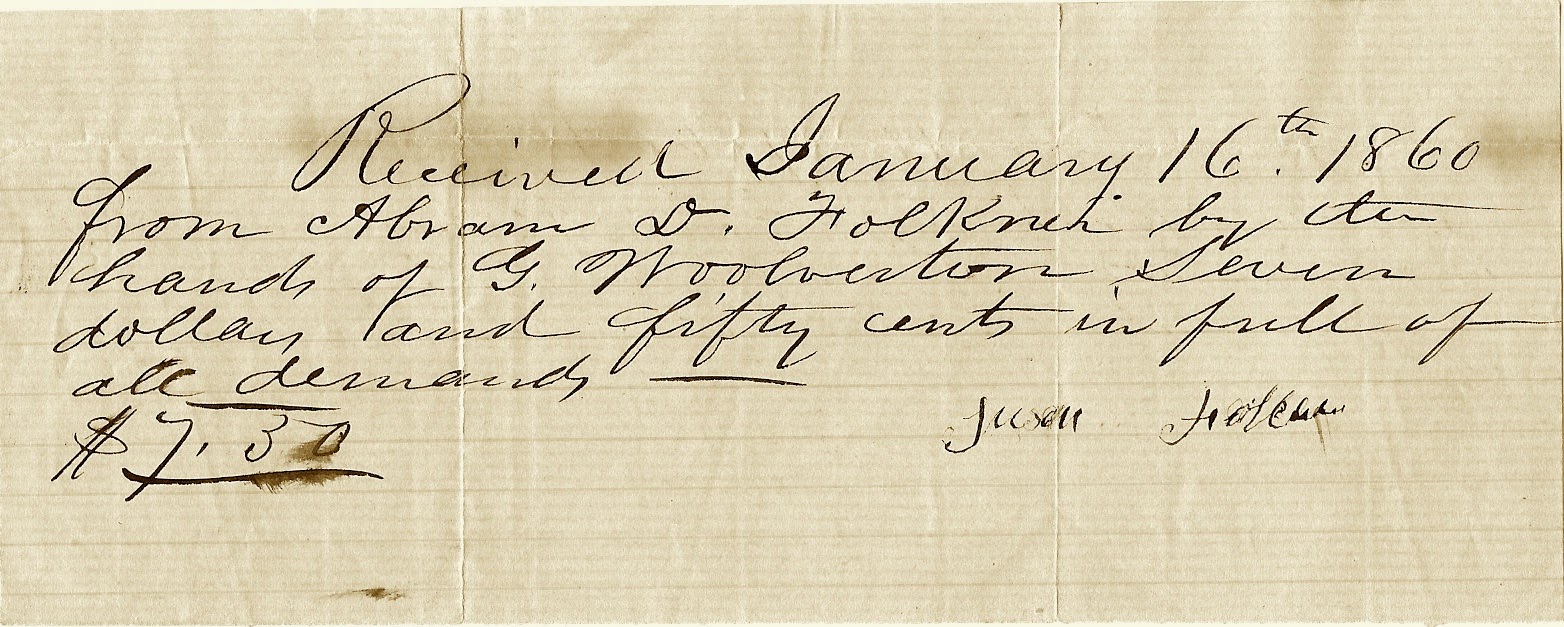 Received January 16th. 1860
from Abram D. Folkner by the
hands of G. Woolverton Seven
dollars and fifty cents in full of
all demands
$7.50